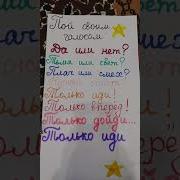 Пой своим
голосом
Да или нет?
Тьма или свет?
Плач или смех?
Только иди!
Только вперёд!
Только дойди...
Только иди